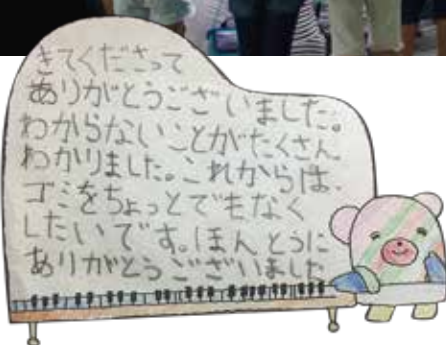 きてくださって
ありがとうございました。
わからないことがたくさん
わかりました。これからは、
ゴミをちょっとでもなく
したいです。ほんとうに
ありがとうございました